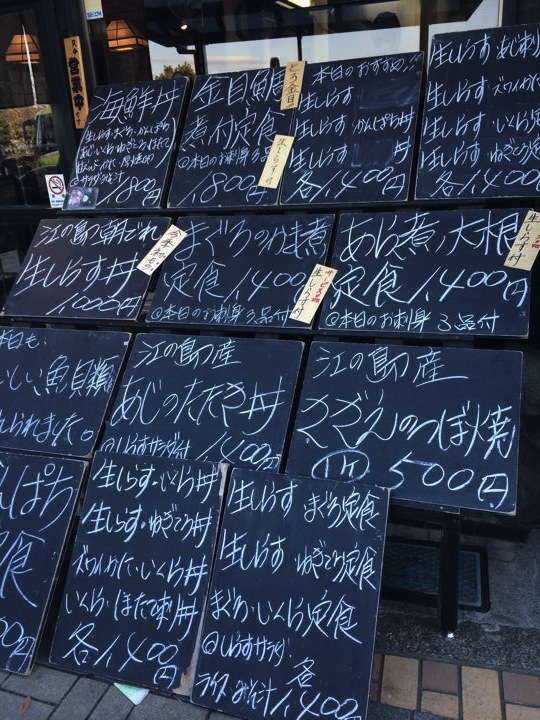 営業中
海鮮丼
1,800円
金目鯛
煮付定食
@本日のお刺身3品付
1,800円
とろ金目
生しらす付
本日のおすすめ
生しらす
生しらす かんぱち丼
生しらす 丼
各1,400円
生しらす・あじ刺
生しらす・ズワイかに
生しらす・いくら
生しらす・ねぎとろ
各1,400円
江の島朝どれ
生しらす丼
1,000円
まぐろのかま煮
定食 1,400円
@本日のお刺身3品付
生しらす付
あら煮・大根
定食 1,400円
@本日のお刺身3品付
生しらす付
本日も、
いしい魚貝類
んられました。
江の島産
あじのたたき丼
@しらすサラダ付 1,400円
江の島産
さざえのつぼ焼
500円
んぱち
定食
00円
生しらす・いくら丼
生しらす・ねぎとろ丼
ズワイかに・いくら丼
いくら・ほたて刺丼
各1,400円
生しらす まぐろ定食
生しらす ねぎとろ定食
まぐろ・いくら定食
@しらすサラダ・
ライス・みそ汁
各1,400円